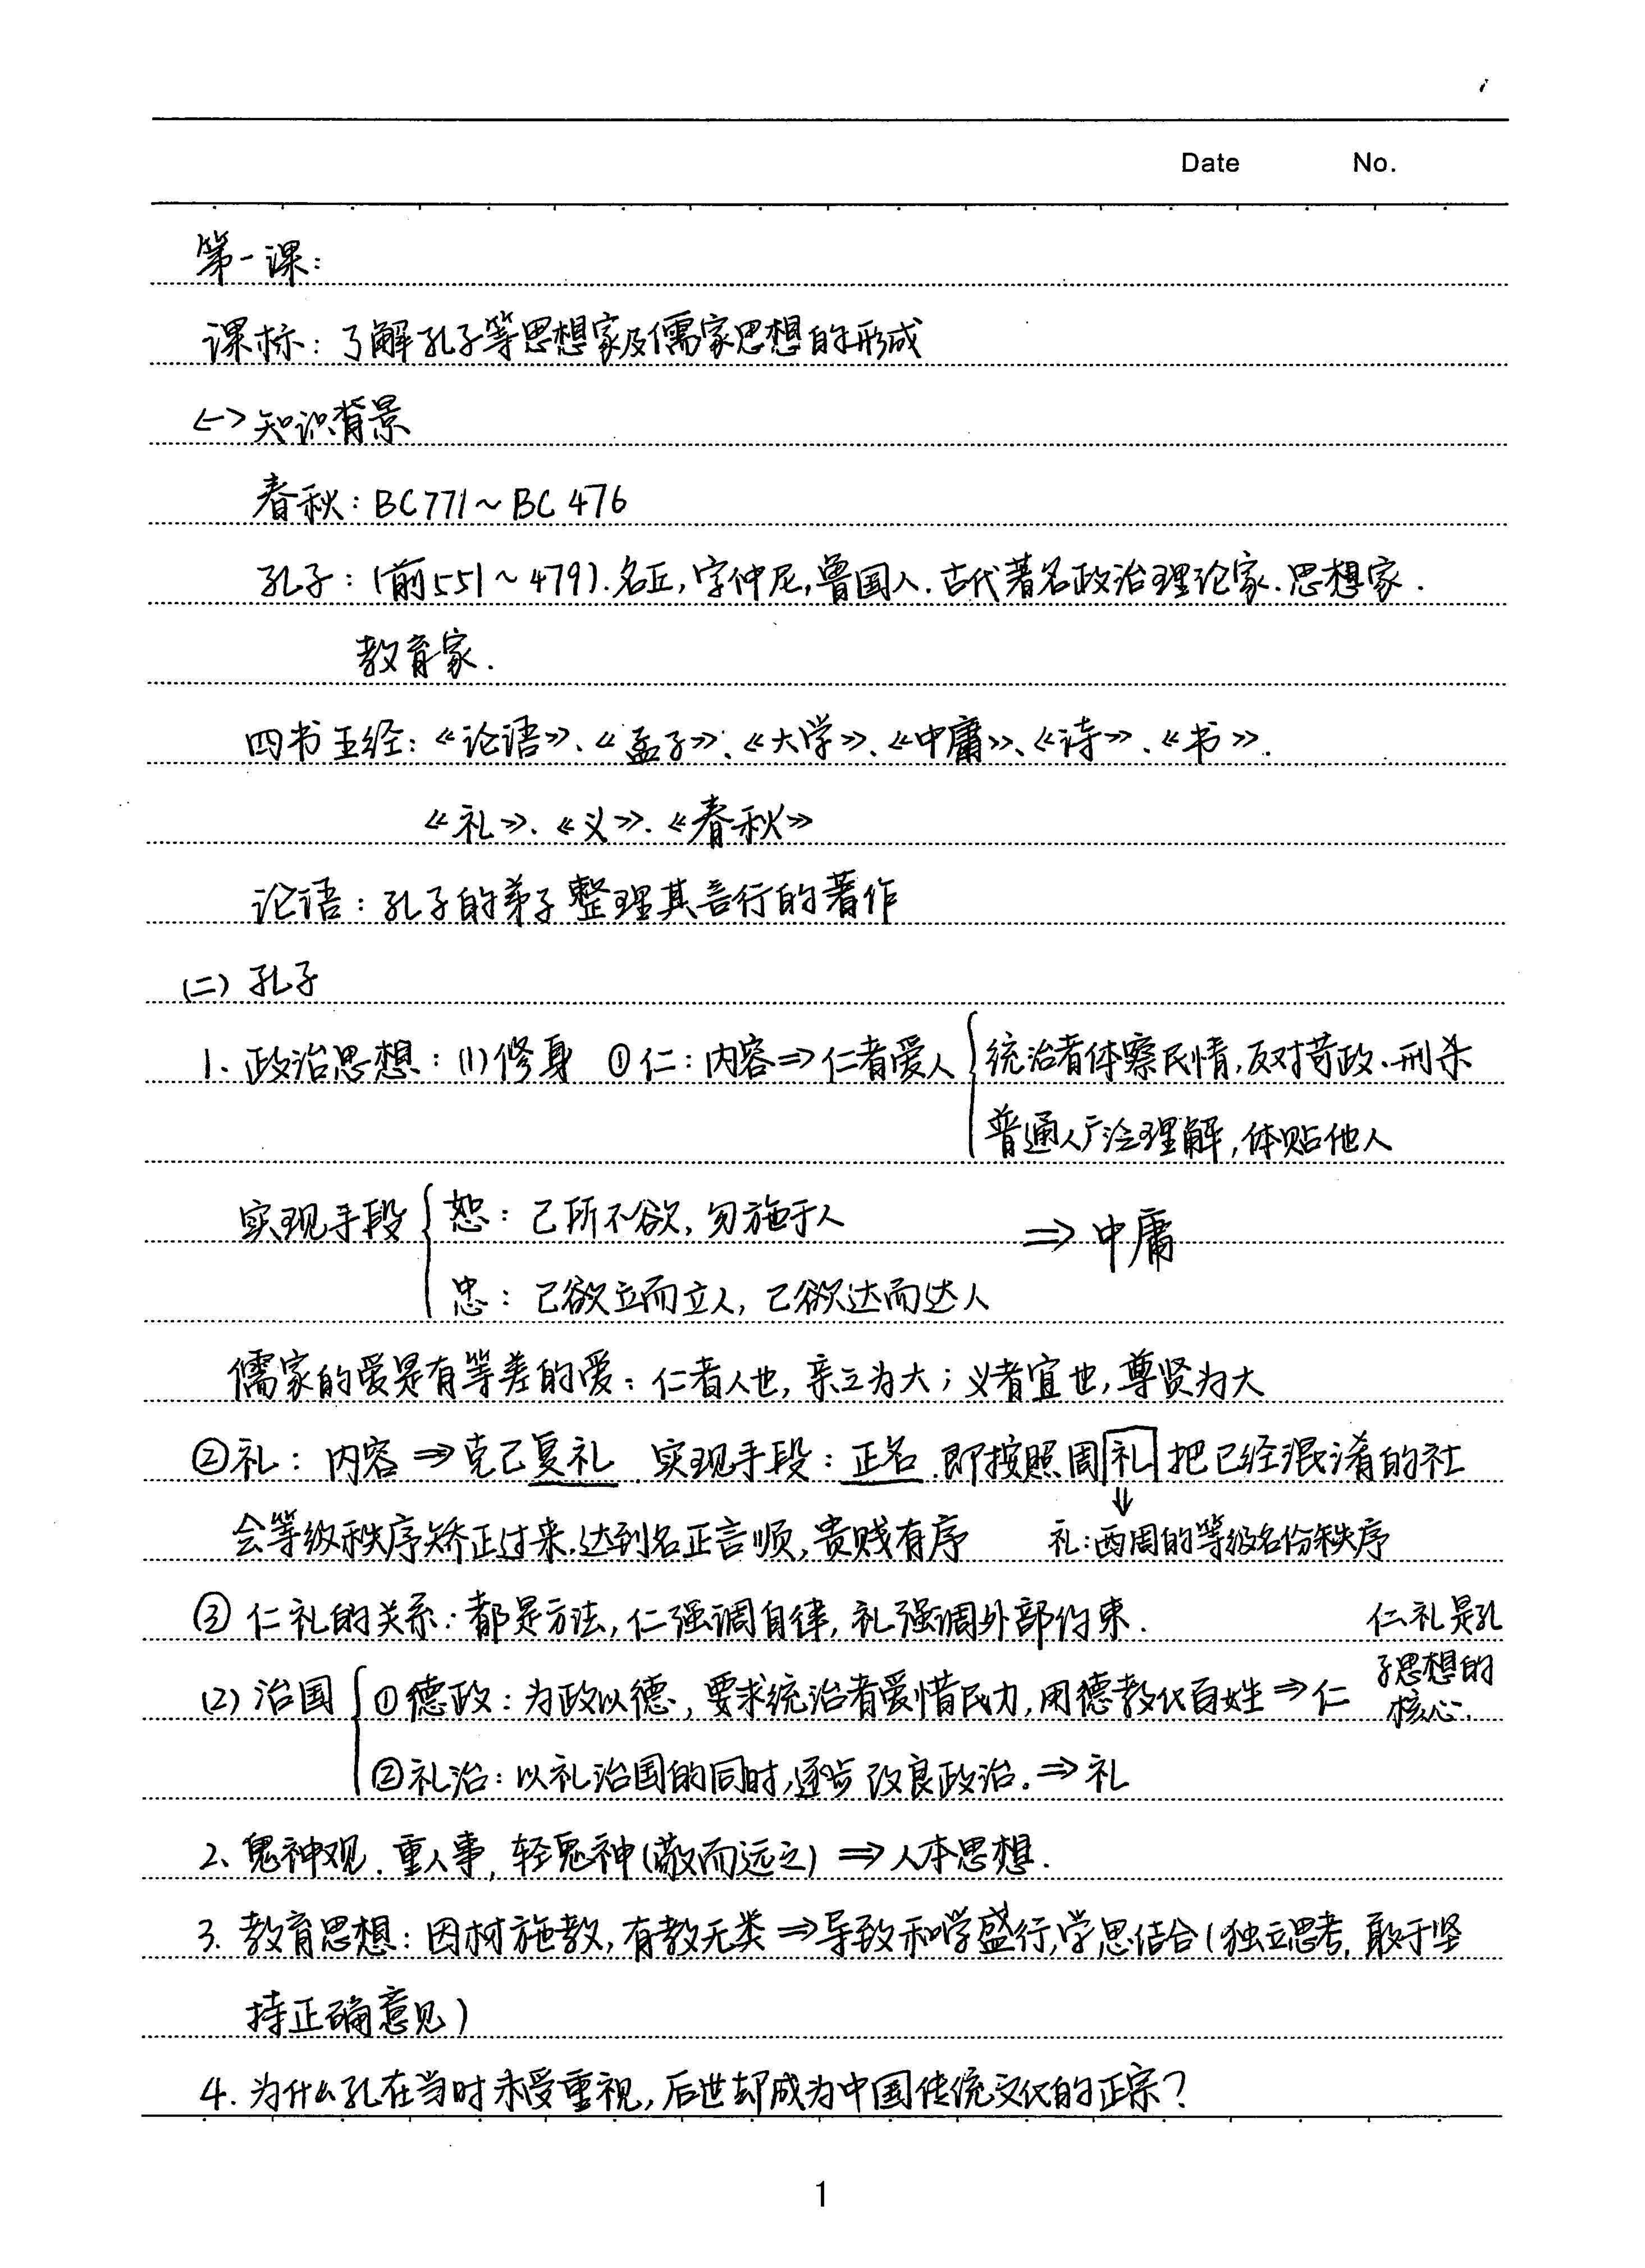 Date No.
第一课:
课标: 了解孔子等思想家及儒家思想的形成
<一>知识背景
春秋: BC771~BC 476
孔子: (前551~479).名丘,字仲尼,鲁国人.古代著名政治理论家.思想家.
教育家.
四书五经: 《论语》、《孟子》、《大学》、《中庸》、《诗》、《书》.
《礼》、《义》、《春秋》
论语: 孔子的弟子整理其言行的著作
(二) 孔子
1. 政治思想: (1)修身 ①仁: 内容⇒仁者爱人 { 统治者体察民情,反对苛政、刑杀
普通人广泛理解,体贴他人
实现手段 { 恕: 己所不欲, 勿施于人
⇒ 中庸
忠: 己欲立而立人, 己欲达而达人
儒家的爱是有等差的爱: 仁者人也, 亲之为大; 义者宜也, 尊贤为大
②礼: 内容⇒克己复礼. 实现手段: 正名.即按照周礼把已经混淆的社
会等级秩序矫正过来.达到名正言顺,贵贱有序 礼:西周的等级名份秩序
③ 仁礼的关系: 都是方法, 仁强调自律, 礼强调外部约束.
仁礼是孔
子思想的
核心.
(2) 治国 { ①德政: 为政以德, 要求统治者爱惜民力, 用德教化百姓⇒仁
②礼治: 以礼治国的同时,逐步改良政治.⇒礼
2、鬼神观. 重人事, 轻鬼神(敬而远之) ⇒人本思想.
3. 教育思想: 因材施教, 有教无类⇒导致私学盛行,学思结合(独立思考, 敢于坚
持正确意见)
4. 为什么孔在当时未受重视, 后世却成为中国传统文化的正宗?
1